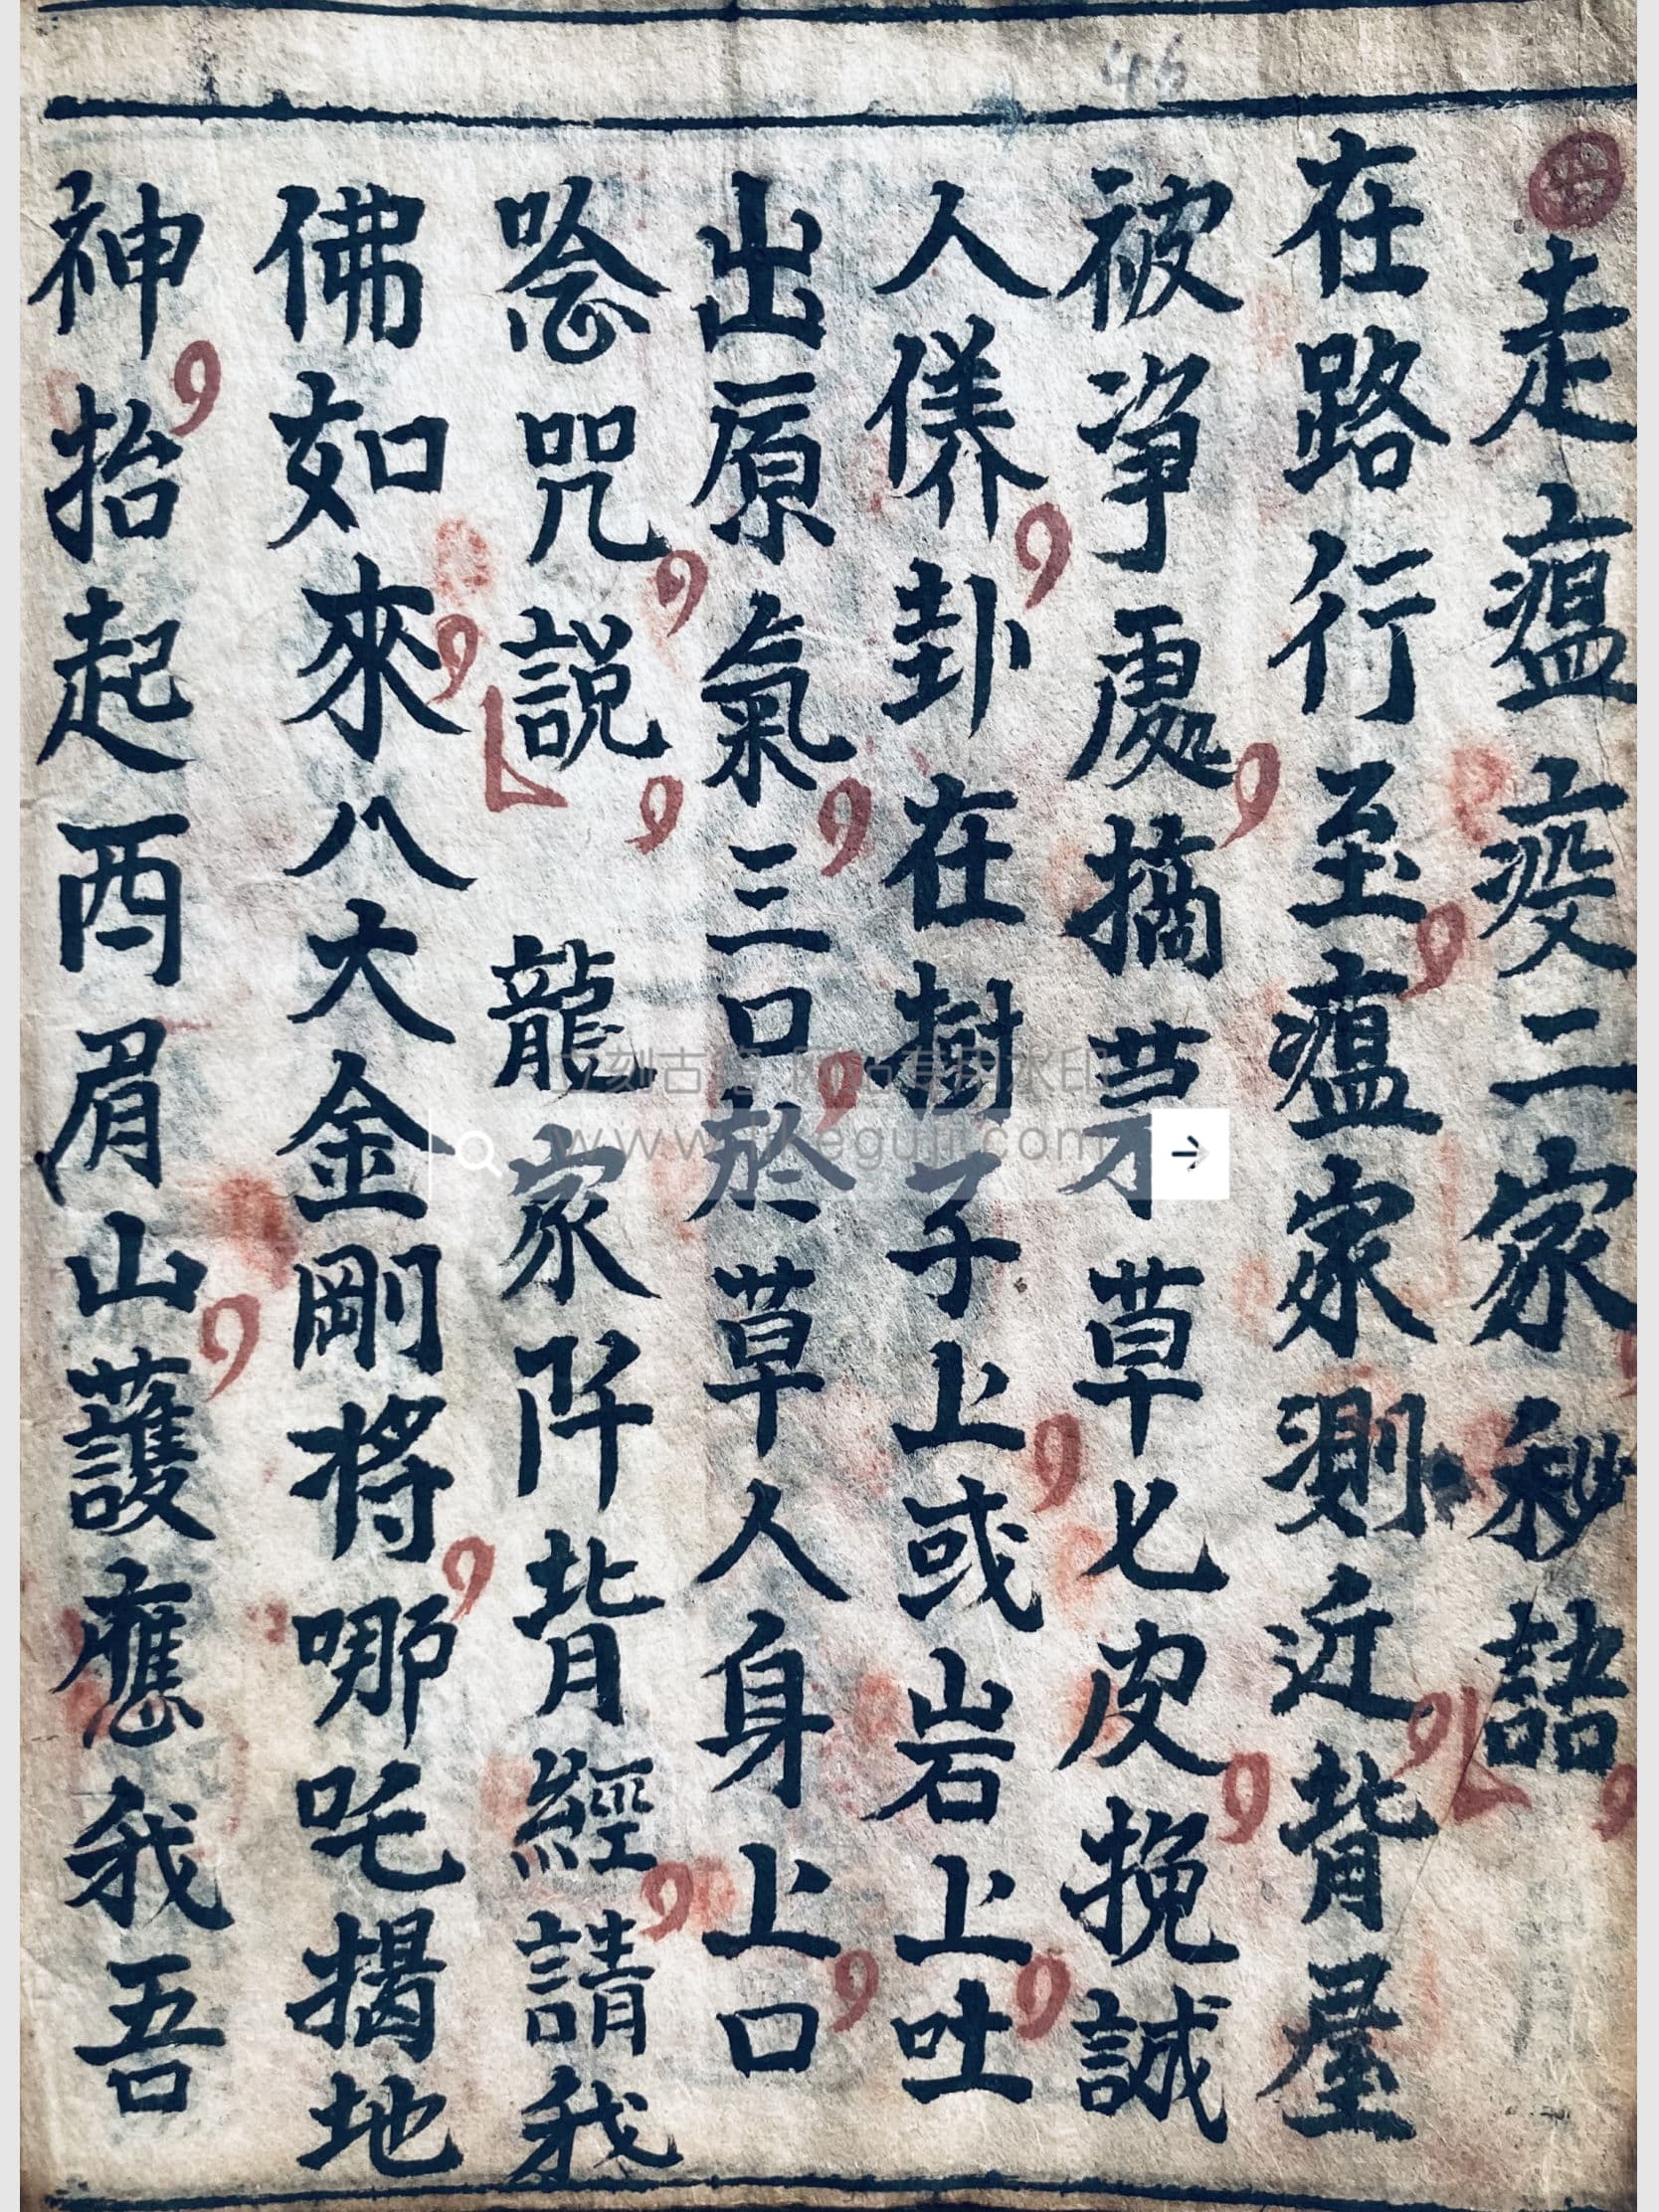 走瘟疫二家秘訣
在路行至瘟家測近背屋
被争處摘茅草七皮挽誠
人儀卦在樹子上或岩上吐
出原氣三口於草人身上口
唸咒説 龍家阡背經請我
佛如來八大金剛將哪吒揭地
神抬起西眉山護應我吾
46
www.likeguji.com